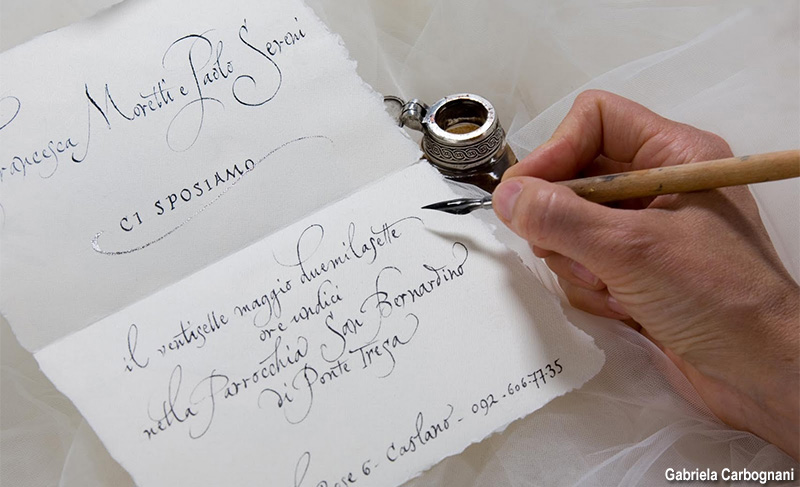 Francesca Moretti e Paolo Sereni
CI SPOSIAMO
il ventisette maggio duemilasette
ore undici
nella Parrocchia San Bernardino
di Ponte Tresa
6 - Caslano - 092 - 606·77·35
Gabriela Carbognani